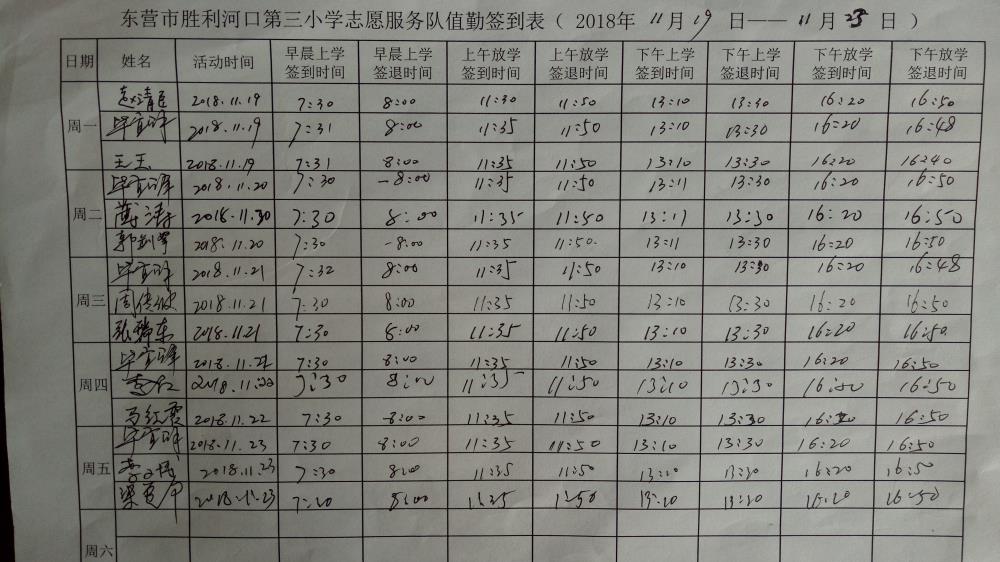 东营市胜利河口第三小学志愿服务队值勤签到表（ 2018年 11月 19 日—— 11月 23 日 ）
日期 姓名 活动时间 早晨上学签到时间 早晨上学签退时间 上午放学签到时间 上午放学签退时间 下午上学签到时间 下午上学签退时间 下午放学签到时间 下午放学签退时间
周一 2018.11.19 7:30 8:00 11:30 11:50 13:10 13:30 16:20 16:50
2018.11.19 7:31 8:00 11:35 11:50 13:10 13:30 16:20 16:48
王玉 2018.11.19 7:31 8:00 11:35 11:50 13:10 13:30 16:20 16:40
周二 2018.11.20 7:30 -8:00 11:35 11:50 13:11 13:30 16:20 16:50
2018.11.30 7:30 8:00 11:35 11:50 13:11 13:30 16:20 16:50
2018.11.20 7:30 -8:00 11:35 11:50 13:11 13:30 16:20 16:50
周三 2018.11.21 7:32 8:00 11:35 11:50 13:10 13:30 16:20 16:48
2018.11.21 7:30 8:00 11:35 11:50 13:10 13:30 16:20 16:50
2018.11.21 7:30 8:00 11:35 11:50 13:10 13:30 16:20 16:50
周四 2018.11.22 7:30 8:00 11:35 11:50 13:10 13:30 16:20 16:50
李红 2018.11.22 7:30 8:00 11:35 11:50 13:10 13:30 16:50
马红霞 2018.11.22 7:30 -8:00 11:35 11:50 13:10 13:30 16:20 16:50
周五 2018.11.23 7:30 8:00 11:35 11:50 13:10 13:30 16:20 16:50
2018.11.23 7:30 8:00 11:35 11:50 13:10 13:30 16:20 16:50
2018.11.23 8:00 11:50 16:50
周六